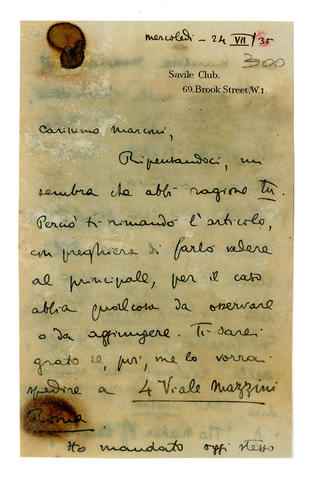 mercoledì - 24 VII/35
300
Savile Club.
69. Brook Street. W.1.
Carissimo Marconi,
Ripensandoci, mi
sembra che abbi ragione tu.
Perciò ti rimando l'articolo,
con preghiera di farlo vedere
al principale, per il caso
abbia qualcosa da osservare
o da aggiungere. Ti sarei
grato se, poi, me lo vorrai
spedire a 4 Viale Mazzini
Roma
Ho mandato oggi stesso